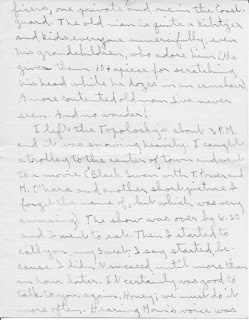 ficers, one private and me in the Coast
guard. The old man is quite a kibitzer
and kids everyone unmercifully, even
his grandchildren, who adore him. (He
gives them 10¢ apiece for scratching
his head while he dozes in an armchair)
A more contented old man I've never
seen. And no wonder!
I left the Topolosky's about 3 P.M.
and it was snowing heavily. I caught
a trolley to the center of town and went
to a movie ("Black Swan" with T. Power and
M. O'Hara and another short picture I
forget the name of, but which was very
amusing). The show was over by 6:30
and I went to eat. Then I started to
call you, my Sweet; I say started be-
cause I didn't succeed until more than
an hour later. It certainly was good to
talk to you again, Honey; we must do it
more often. Hearing Honey's voice was